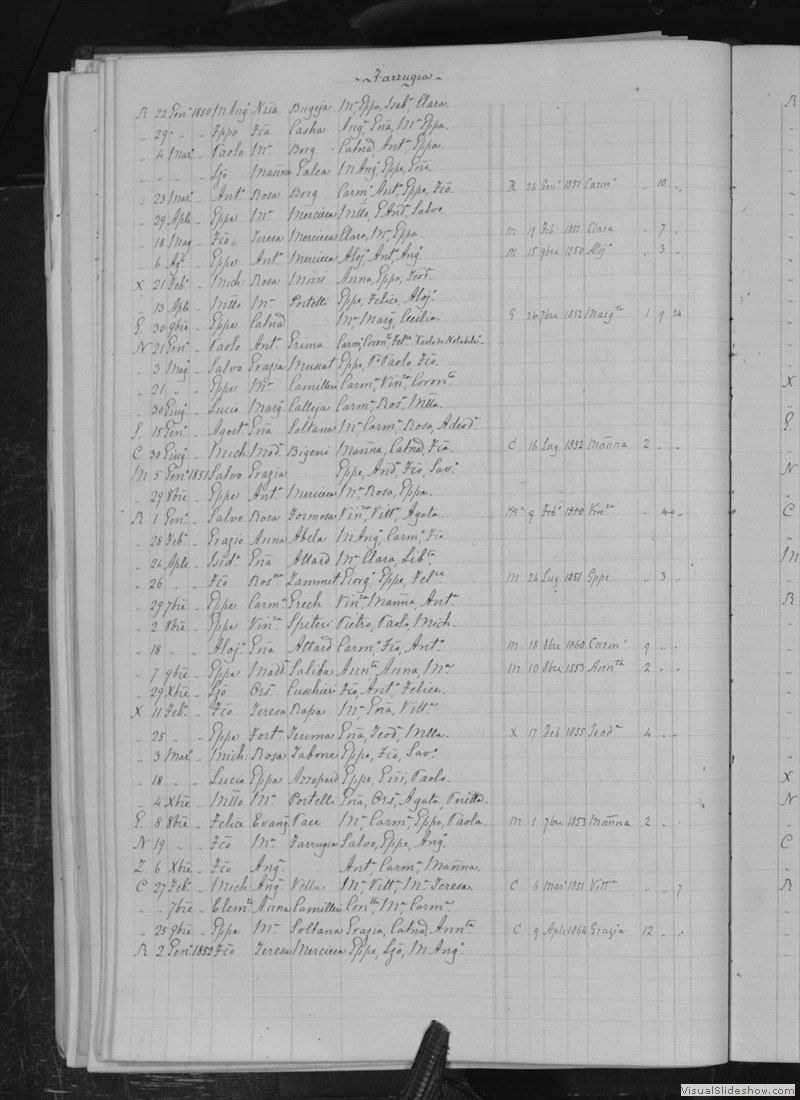 Farrugia
R 22 Gen° 1850 M Ang° Nzia Bugeja M, Eppa, Isab, Clara.
" 29 " " Fppo Fca Casha Ang, Ena, M, Eppa.
" 4 Mar° " Paolo M Borg Catnd, Ant, Eppa.
" " " " Ljo Manna Galea M Ang, Eppe, Eni.
" 23 Mar° " Ant° Rosa Borg Carm, Ant, Eppe, Fco. R 24 Gen° 1851 Carm° " 10 "
" 29 Aple " Eppe M Mercieca Mtto, P And, Salvo.
" 18 Mag " Fco Teresa Mercieca Clara, M, Eppa. M 19 Feb 1851 Clara " 7 "
" 6 " Eppe Ant Mercieca Aloj, Ant, Ang. M 15 9bre 1850 Aloj° " 3 "
X 21 Feb° " Mich Rosa Mizzi Anna, Eppa, Teod.
" 13 Aple " Mtto M Portelli Eppe, Felice, Aloj.
G. 30 9bre " Eppe Catnd M, Marg, Cecilia. G 26 7bre 1852 Marg 1 9 24
N 21 Gen° " Paolo Ant Grima Carm,
" 3 Mag " Salvo Grazia Muscat Eppe, P Paolo, Fco.
" 21 " " Eppe M Camilleri Carm, Vinz,
" 30 Giug " Lucio Marg Calleja Carm, Ros, Mtta.
S. 15 Gen° " Agost Ena Soltana M, Carm, Rosa, Adeod.
C 30 Giug° " Mich Mad Bigeni Manna, Catnd, Fca. C 16 Lug 1852 Manna 2 " "
M 5 Gen° 1851 Salvo Grazia Eppe, And, Fco, Sav°
" 29 8bre " Eppe Ant Mercieca M, Rosa, Eppa.
R 1 Gen° " Salvo Rosa Formosa Vinz, Vitt, Agata. 9 Feb° Vinz
" 28 Feb° " Grazio Anna Abela M Ang, Carm, Fco
" 24 Aple " Isid° Ena Attard M, Clara, Lib
" 26 " " Fco Ros Zammit Giorg, Eppe, Fel M 24 Lug 1851 Eppe " 3 "
" 29 7bre " Eppe Carm Grech Vinz, Manna, Ant
" 2 8bre " Eppe Vinz Spiteri Pietro, Paolo, Mich.
" 18 " " Aloj° Ena Attard Carm, Fco, Ant° M 18 8bre 1860 Carm° 9 " "
" 7 9bre " Eppe Madd Saliba Ann, Anna, M M 10 8bre 1853 Ann 2 " "
" 29 Xbre " Ljo Ors Cuschieri Fco, Ant, Felice.
X 11 Feb° " Fco Teresa Rapa M, Ena, Vitt
" 25 " " Eppe Fort Teuma Ena, Teod, Mtta. X 17 Feb 1855 Teod 4 " "
" 3 Mar° " Mich Rosa Tabone Eppe, Fco, Sav°
" 18 " Lucio Eppa Azzopard Eppe, Eni, Paolo.
" 4 Xbre " Mtto M Portelli Ena, Ors, Agata,
G. 8 8bre " Felice Evang Pace M, Carm, Eppa, Paola. M 1 7bre 1853 Manna 2 " "
N 19 " " Fco M Farrugia Salvo, Eppe, Ang°
Z 6 Xbre " Fco Ang Ant, Carm, Manna.
C 27 Feb° " Mich Ang Vella M, Vitt, M Teresa. C 6 Mar° 1851 Vitt " " 7
" " 7bre " Clem Anna Camilleri M, Carm
" 25 9bre " Eppe M Soltana Grazia, Catnd, Ann C 9 Aple 1864 Grazia 12 " "
R 2 Gen° 1852 Fco Teresa Mercieca Eppe, Ljo, M Ang°
R
X
G.
N
C
M
R
X
N
C
R
VisualSlideshow.com